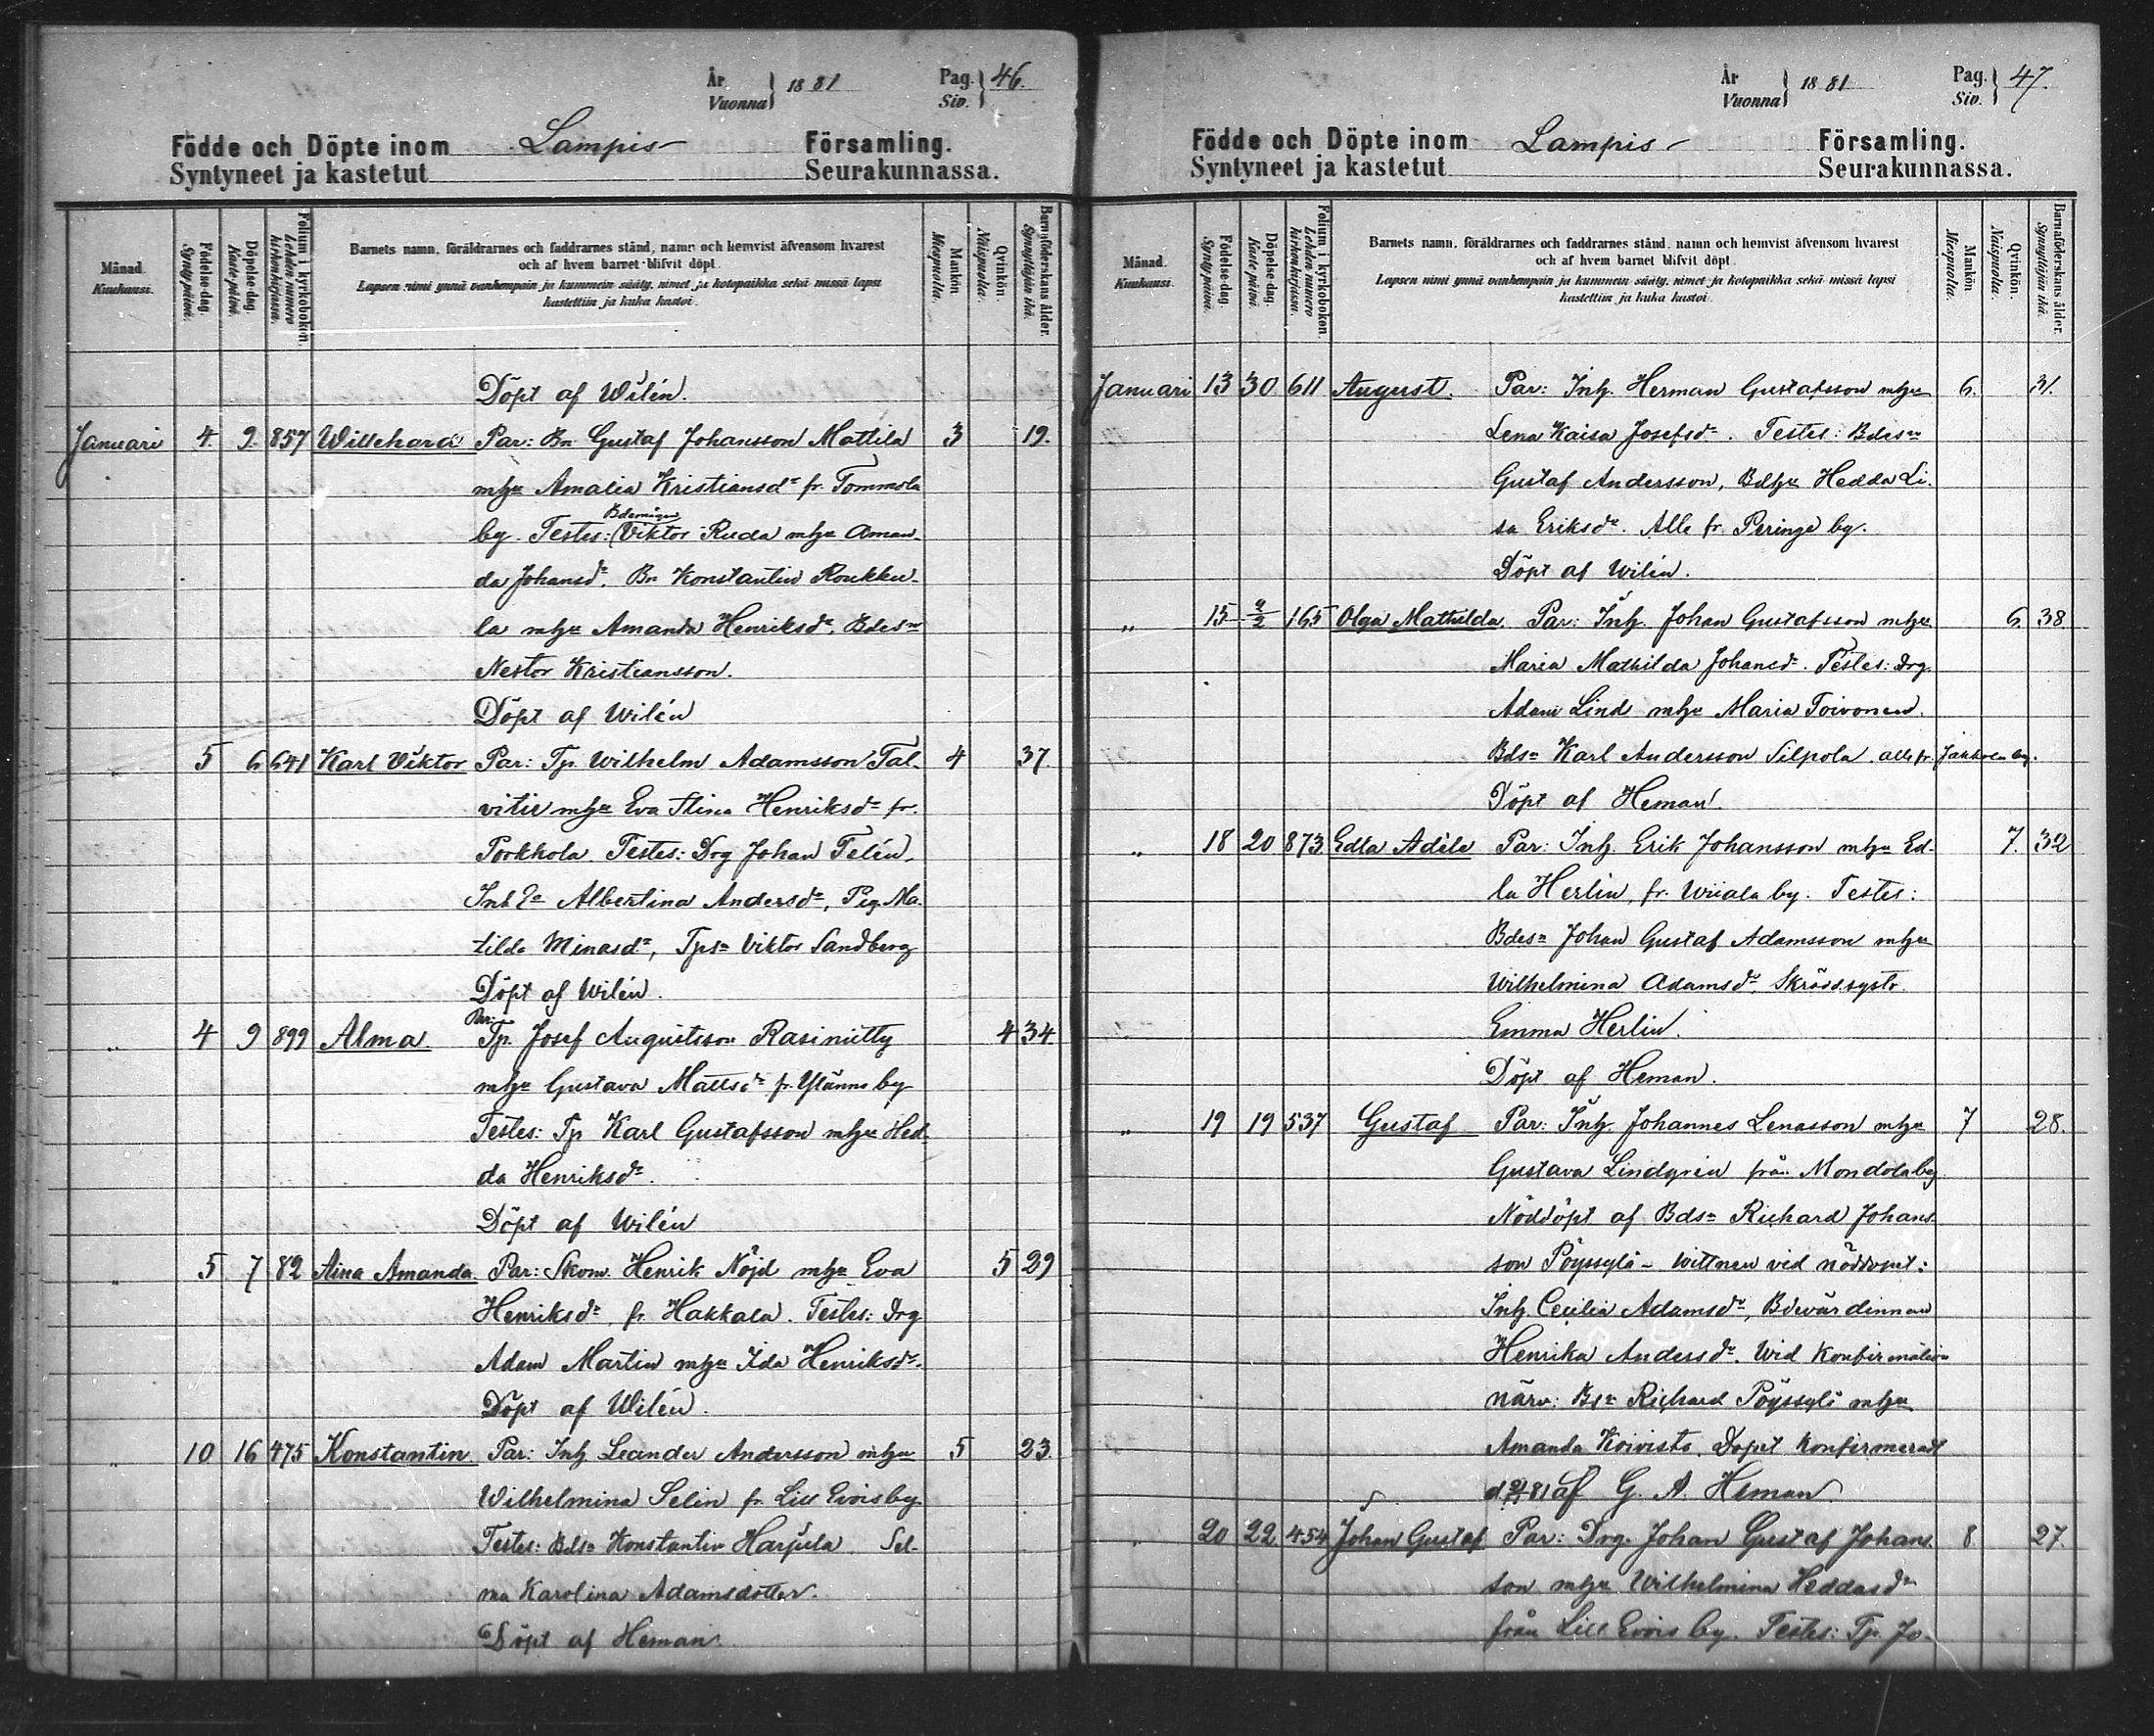 År
Vuonna } 1881 Pag.
Siv. } 46.
Födde och Döpte inom Lampis Församling.
Syntyneet ja kastetut Seurakunnassa.
Månad.
Kuukausi.
Födelse-dag.
Syntypäivä.
Döpelse-dag.
Kaste-päivä.
Folium i kyrkoboken.
Lehden numero
kirkonkirjassa.
Barnets namn, föräldrarnes och faddrarnes stånd, namn och hemvist äfvensom hvarest
och af hvem barnet blifvit döpt.
Lapsen nimi ynnä vanhempain ja kummein sääty, nimet ja kotopaikka sekä missä lapsi
kastettiin ja kuka kastoi.
Mankön
Miespuolia.
Qvinkön.
Naispuolia.
Barnaföderskans ålder.
Synnyttäjän ikä.
Döpt af Wilén.
Januari 4. 9. 857 Willehard Par: Bn Gustaf Johansson Mattila 3 19.
mhu Amalia Kristiansdr fr. Tommola
by. Testes: Viktor Ruda mhu Aman
da Johansdr, Bn Konstantin Roukku-
la mhu Amanda Henriksdr, Bdesn
Nestor Kristiansson.
Döpt af Wilén
" 5 6 641 Karl Viktor Par: Tp. Wilhelm Adamsson Tal- 4 37.
vitie mhu Eva Stina Henriksdr fr.
Porkkola. Testes: Drg Johan Felén,
Albertina Andersdr, Pig. Ma.
tilda Minasdr, Tpsn Viktor Sandberg
Döpt af Wilén.
" 4 9 899 Alma Par: Tp. Josef Augustsson Rasiniitty 4 34
mhu Gustava Mattsdr fr. Ylänne by
Testes: Tp Karl Gustafsson mhu Hed
da Henriksdr.
Döpt af Wilén
" 5 7 82 Aina Amanda Par: Skom. Henrik Nöjd mhu Eva 5 29
Henriksdr, fr. Hakkala. Testes: Drg
Adam Martin mhu Ida Henriksdr.
Döpt af Wilén.
" 10 16 475 Konstantin Par: Inh Leander Andersson mhu 5 23.
Wilhelmina Selin fr. Lill Evois by.
Testes: Bdsn Konstantin Harjula Sel-
ma Karolina Adamsdotter.
Döpt af Heman.
År
Vuonna } 1881 Pag.
Siv. } 47.
Födde och Döpte inom Lampis Församling.
Syntyneet ja kastetut Seurakunnassa.
Månad.
Kuukausi.
Födelse-dag.
Syntypäivä.
Döpelse-dag.
Kaste-päivä.
Folium i kyrkoboken.
Lehden numero
kirkonkirjassa.
Barnets namn, föräldrarnes och faddrarnes stånd, namn och hemvist äfvensom hvarest
och af hvem barnet blifvit döpt.
Lapsen nimi ynnä vanhempain ja kummein sääty, nimet ja kotopaikka sekä missä lapsi
kastettiin ja kuka kastoi.
Mankön
Miespuolia.
Qvinkön.
Naispuolia.
Barnaföderskans ålder.
Synnyttäjän ikä.
Januari 13 30 611 August. Par: Inh. Herman Gustafsson mhu 6. 31.
Lena Kaisa Josefsdr. Testes: Bdesn
Gustaf Andersson, Bdhu Hedda Li.
sa Eriksdr. Alle fr. Peringe by.
Döpt af Wilén.
" 15 9/2 165 Olga Mathilda. Par: Inh. Johan Gustafsson mhu 6. 38.
Maria Mathilda Johansdr. Testes: Drg.
Adam Lind mhu Maria Toivonen.
Bdsn Karl Andersson Silpola. alle fr. Jahkola by.
Döpt af Heman.
" 18 20 873. Edla Adèle Par: Inh. Erik Johansson mhu Ed- 7. 32
la Herlin, fr. Wiiala by. Testes:
Bdesn Johan Gustaf Adamsson mhu
Wilhelmina Adamsdr, Skrädd.systr.
Emma Herlin.
Döpt af Heman.
" 19 19 537 Gustaf Par: Inh. Johannes Lenasson mhu 7 28.
Gustava Lindgren från Mondola by
Nöddöpt af Bdsn Richard Johans
son Pöyssylä - Wittnen vid nöddopet:
Inh. Cecilia Adamsdr, Bdevärdinnan
Henrika Andersdr. Wid Konfirmation
närv: Bsn Richard Pöyssylä mhu
Amanda Koivisto, Dopet konfirmeradt
81 af G. A. Heman.
" 20 22 454 Johan Gustaf Par: Drg. Johan Gustaf Johans. 8. 27.
son mhu Wilhelmina Heddasdr
från Lill Evois by. Testes: Tp. Jo-